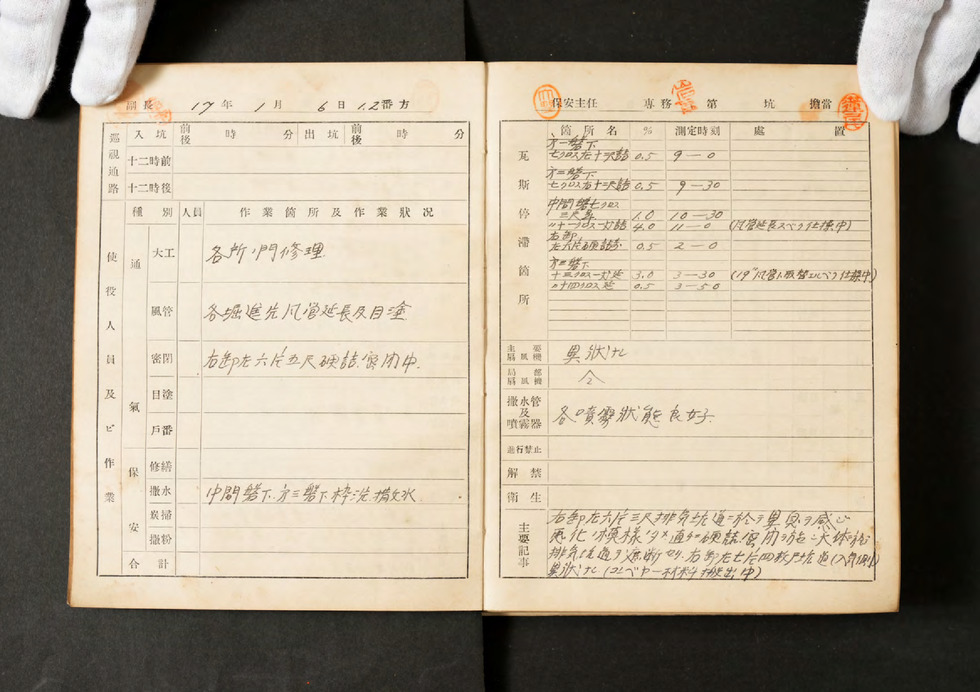 副長 17年1月6日1.2番方
巡視通路 入坑 前後 時 分 出坑 前後 時 分
十二時前
十二時後
使役人員及ビ作業
種別 人員 作業箇所及作業狀况
通氣
大工 各所ノ門修理
風管 各堀進先風管延長及目塗
密閉 右卸左六片五尺硬詰密閉中
目塗
戶番
保安
修繕
撒水 中間盤下.方三盤下枠洗.撒水
炭掃
撒粉
合計
保安主任 專務 第 坑 擔當
瓦斯停滯箇所
箇所名 % 測定時刻 處置
方一盤下
七クロス右十三尺詰 0.5 9-0
方二盤下
七クロス右十三尺詰 0.5 9-30
中間盤七クロス
三尺 1.0 10-30
〃十一クロス一片詰 4.0 11-0 (風管延長スベク仕操中)
右卸
左六片硬詰 0.5 2-0
方三盤下
十三クロス一片延 3.0 3-30
〃十四クロス延 0.5 3-50
主要扇風機 異狀ナシ
局部扇風機 〃
撒水管及噴霧器 各噴霧狀態良好
進行禁止
解禁
衛生
主要記事
右卸左六片三尺排氣坑道ニ於テ異臭ヲ感ジ
悪化ノ模樣
排氣坑道ヲ遮断セリ.右卸左七片四
異狀ナシ